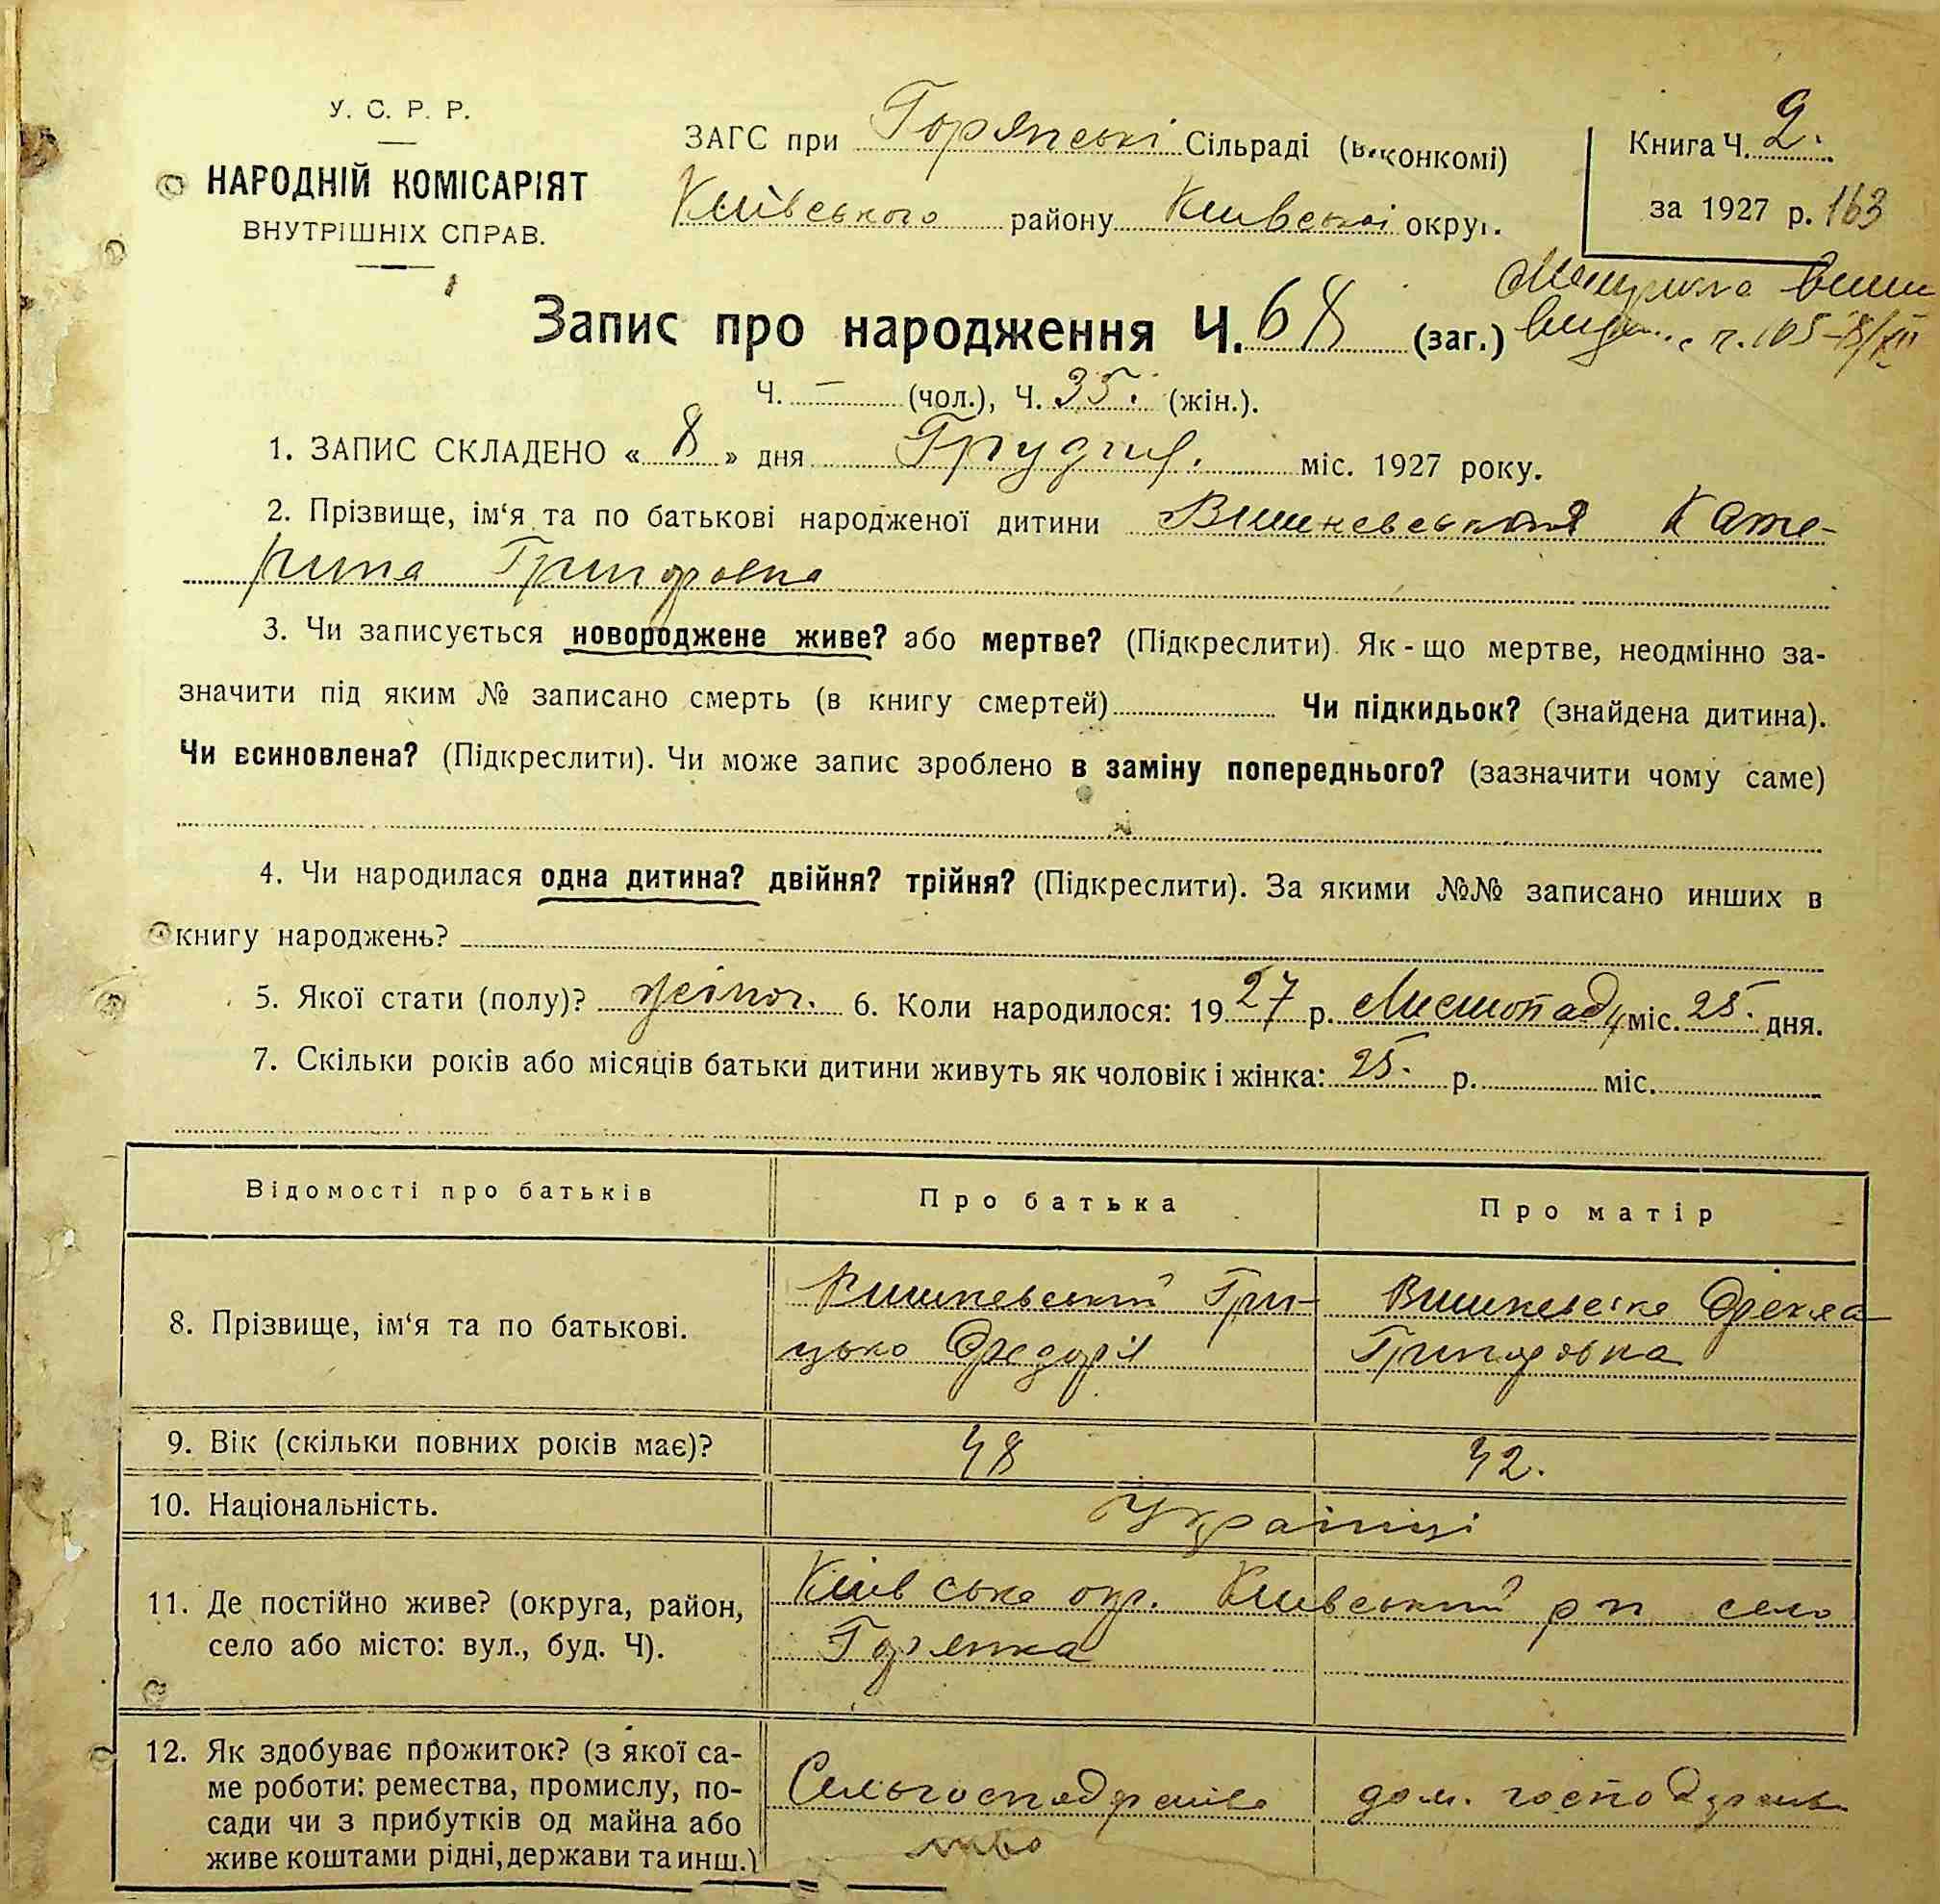 У. С. Р. Р.
НАРОДНІЙ КОМІСАРІЯТ
ВНУТРІШНІХ СПРАВ.
ЗАГС при Горянські Сільраді (виконкомі)
Київського району Київської округ.
Книга Ч. 2.
за 1927 р. 163
Запис про народження Ч. 68 (заг.)
ч. 105 8/XII
Ч. — (чол.), Ч. 35. (жін.).
1. ЗАПИС СКЛАДЕНО « 8 » дня Грудня. міс. 1927 року.
2. Прізвище, ім‘я та по батькові народженої дитини Вишневська Кате-
рина Григоровна
3. Чи записується новороджене живе? або мертве? (Підкреслити). Як - що мертве, неодмінно за-
значити під яким № записано смерть (в книгу смертей) Чи підкидьок? (знайдена дитина).
Чи всиновлена? (Підкреслити). Чи може запис зроблено в заміну попереднього? (зазначити чому саме)
4. Чи народилася одна дитина? двійня? трійня? (Підкреслити). За якими №№ записано инших в
книгу народжень?
5. Якої стати (полу)? жіноч. 6. Коли народилося: 1927 р. Листопад міс. 25. дня.
7. Скільки років або місяців батьки дитини живуть як чоловік і жінка: 25. р. міс.
Відомості про батьків Про батька Про матір
8. Прізвище, ім‘я та по батькові.
Вишневський Гри-
цько Федорів
Вишневська Фекла
Григоровна
9. Вік (скільки повних років має)? 48 42.
10. Національність. Українці
11. Де постійно живе? (округа, район,
село або місто: вул., буд. Ч).
Київська окр. Київський р н село
Горянка
12. Як здобуває прожиток? (з якої са-
ме роботи: ремества, промислу, по-
сади чи з прибутків од майна або
живе коштами рідні, держави та инш.)
дом.